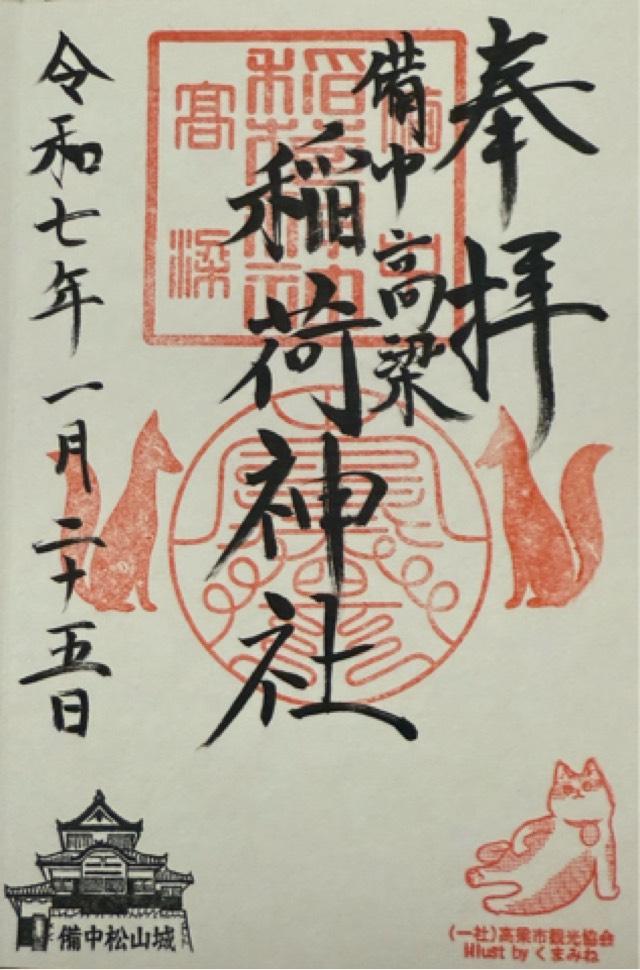 奉拝
備中高梁
稲荷神社
令和七年一月二十五日
備中
稲荷神社
髙梁
備中松山城
(一社)高梁市観光協会
Illust by くまみね